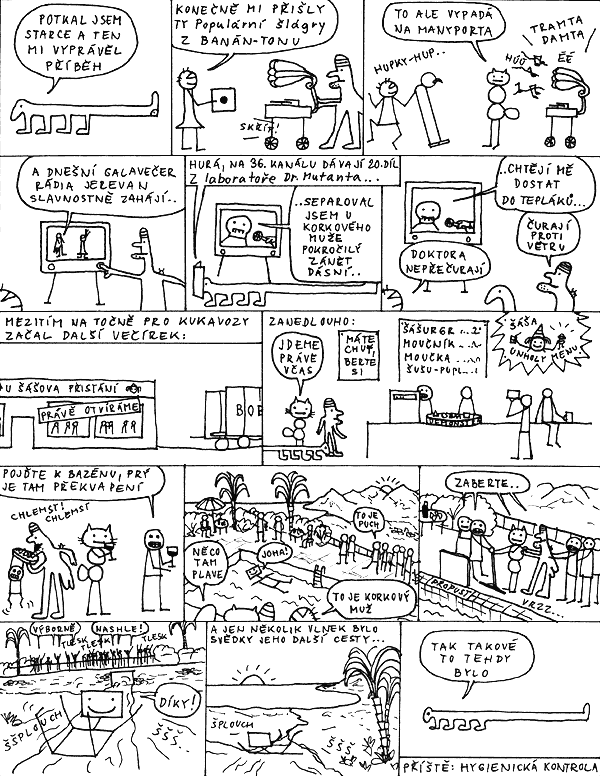 POTKAL JSEM
STARCE A TEN
MI VYPRÁVĚL
PŘÍBĚH
KONEČNĚ MI PŘIŠLY
TY Populární Šlágry
Z BANÁN-TONU
SKŘÍP!
TO ALE VYPADÁ
NA MANYPORTA
HUPKY-HUP..
HÚÚ
TRAMTA
DAMTA
ÉÉ
A DNEŠNÍ GALAVEČER
RÁDIA JEREVAN
SLAVNOSTNĚ ZAHÁJÍ..
HURÁ, NA 36. KANÁLU DÁVAJÍ 20. DÍL
Z laboratoře Dr. Mutanta...
..SEPAROVAL
JSEM U
KORKOVÉHO
MUŽE
POKROČILÝ
ZÁNĚT
DÁSNÍ..
..CHTĚJÍ MĚ
DOSTAT
DO TEPLÁKŮ...
DOKTORA
NEPŘEČURAJÍ
ČURAJÍ
PROTI
VĚTRU
MEZITÍM NA TOČNĚ PRO KUKAVOZY
ZAČAL DALŠÍ VEČÍREK:
U ŠÁŠOVA PŘISTÁNÍ
PRÁVĚ OTVÍRÁME
BOB
ZANEDLOUHO:
JDEME
PRÁVĚ
VČAS
MÁTE
CHUŤ,
BERTE
SI
ŠÁŠURGR
MOUČNÍK
MOUČKA
ŠUŠU-PUPU
ŠÁŠA
UNHOLY MENU
POJĎTE K BAZÉNU, PRÝ
JE TAM PŘEKVAPENÍ
CHLEMST!
CHLEMST
NĚCO
TAM
PLAVE
JOHA!
TO JE
PUCH
TO JE KORKOVÝ
MUŽ
ZABERTE..
PROPUST
VRZZ...
VÝBORNĚ
NASHLE!
TLESK
TLESK
TLESK
ŠŠPLOUCH
DÍKY!
ŠŠŠ
A JEN NĚKOLIK VLNEK BYLO
SVĚDKY JEHO DALŠÍ CESTY...
ŠPLOUCH
ŠŠŠ
TAK TAKOVÉ
TO TEHDY
BYLO
PŘÍŠTĚ: HYGIENICKÁ KONTROLA